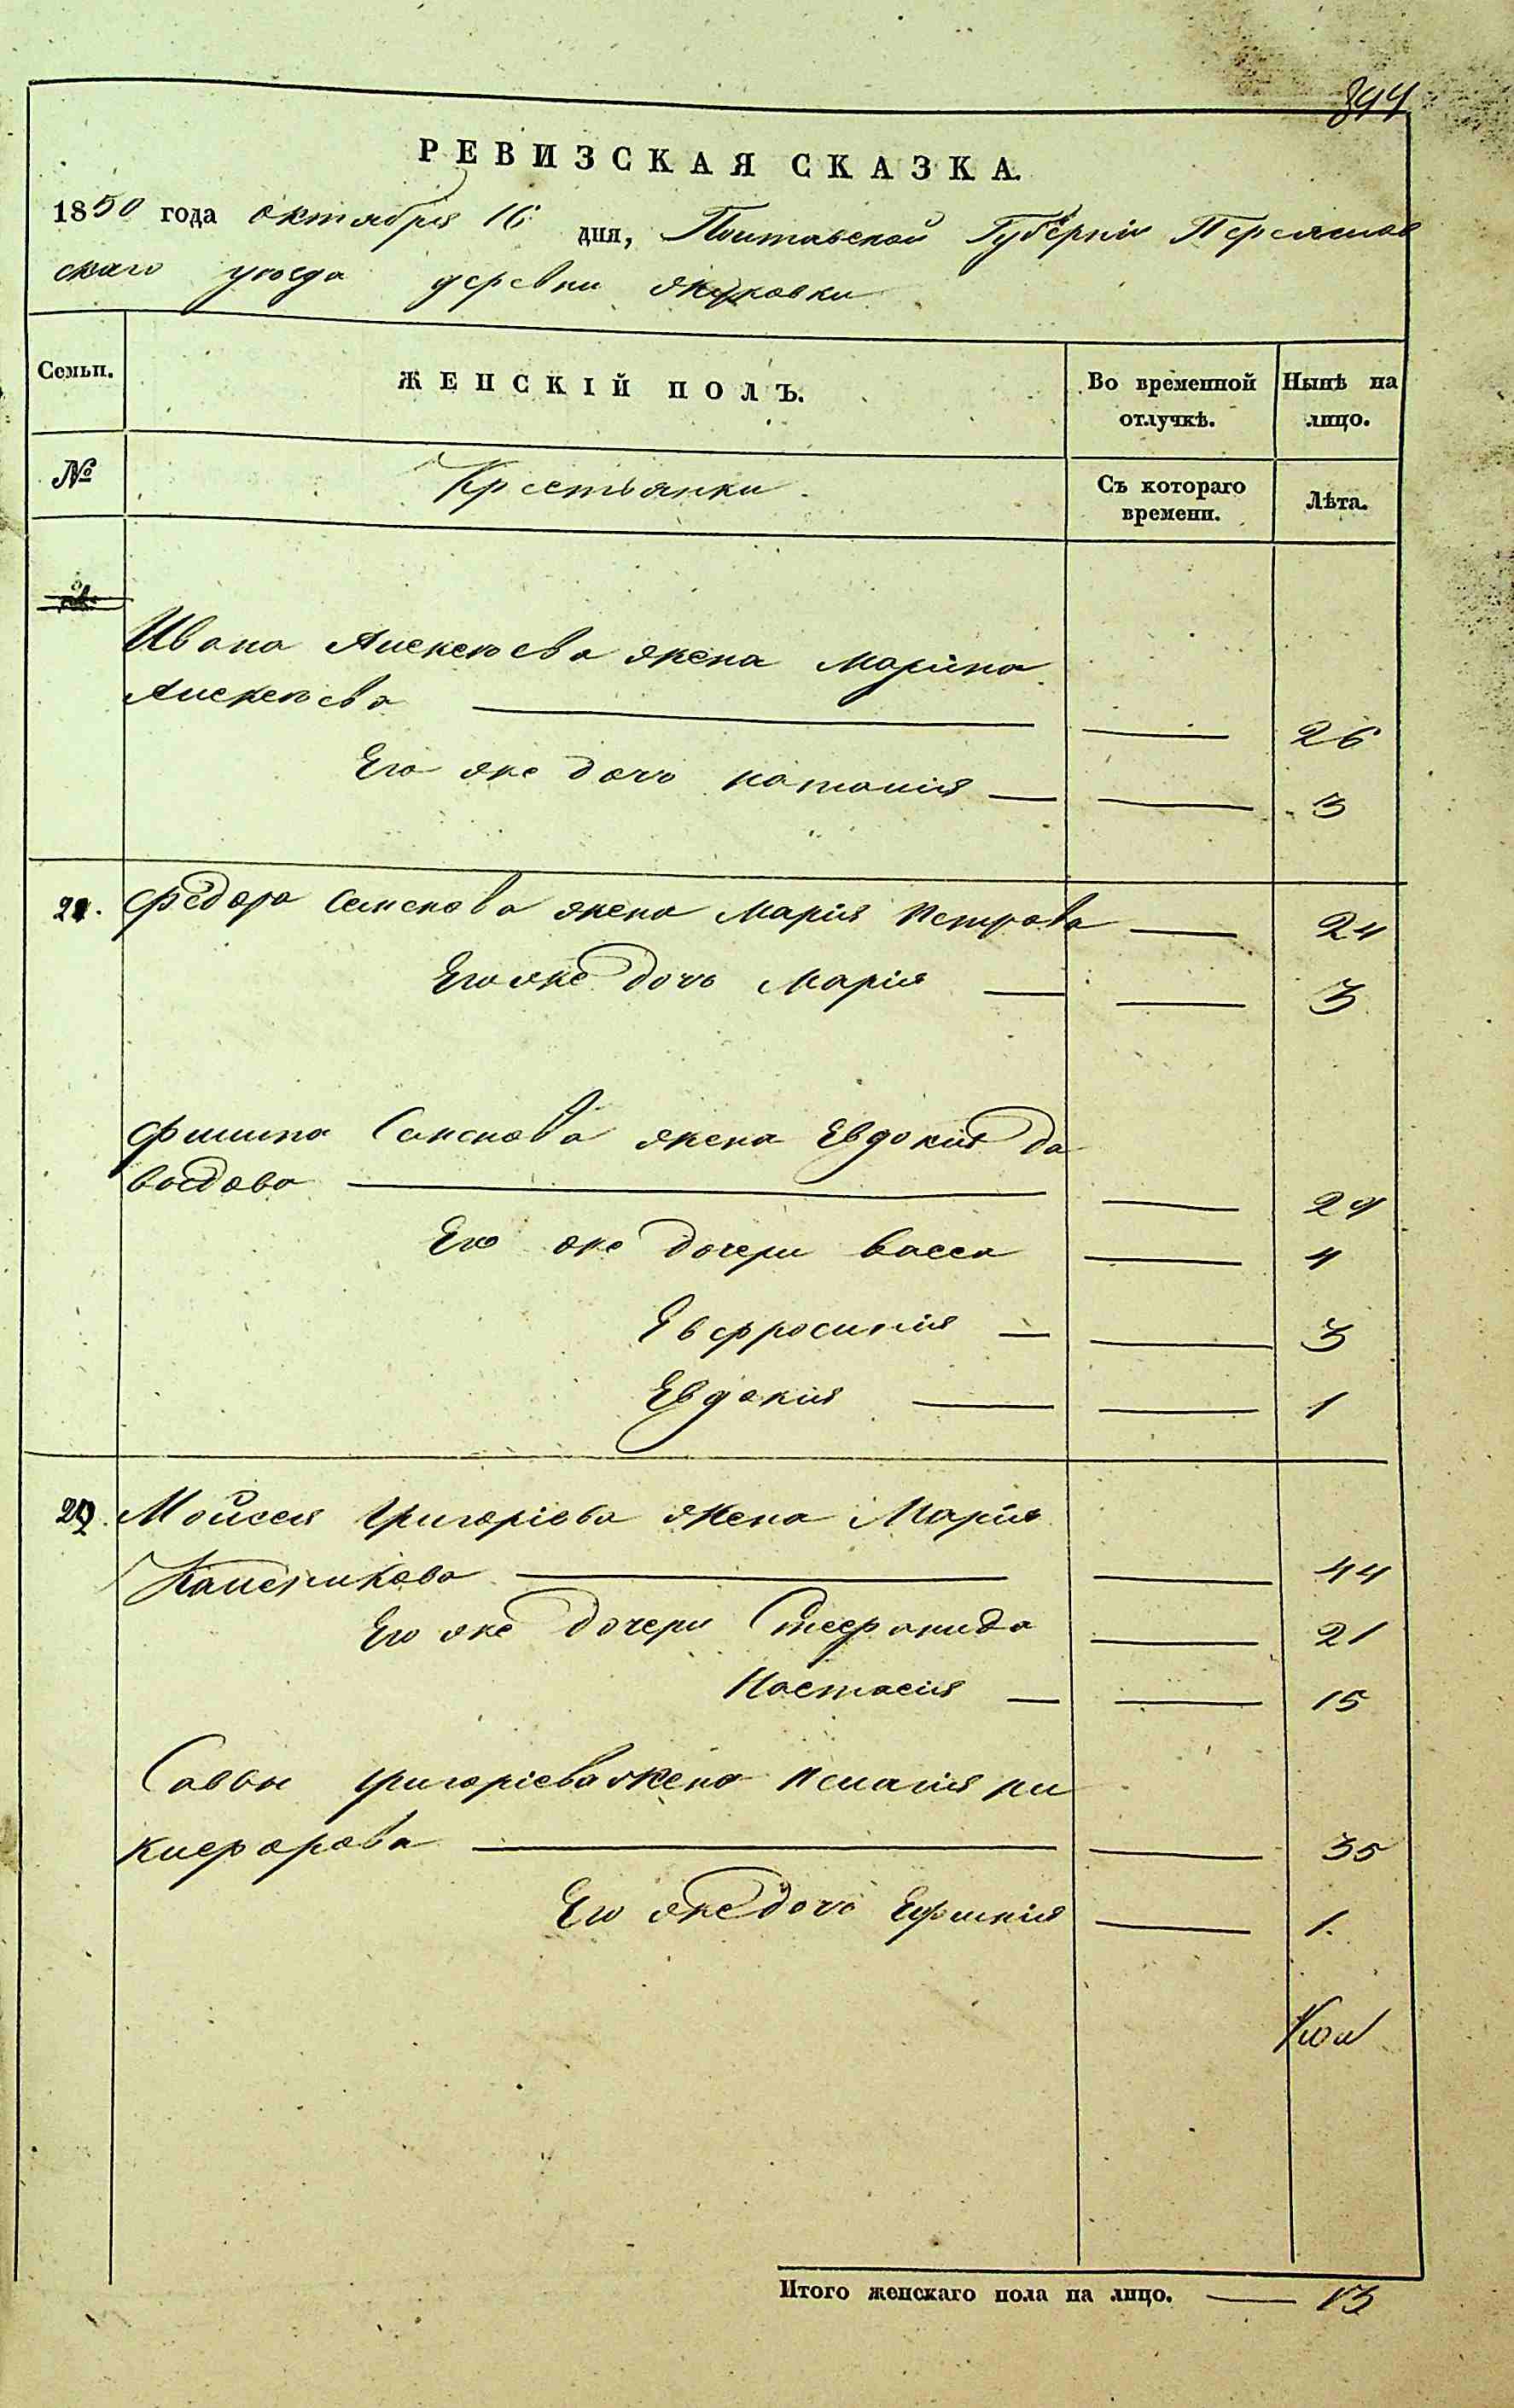 РЕВИЗСКАЯ СКАЗКА.
1850 года октября 16 дня, Полтавской Губерніи Переяслав
скаго уезда деревни
Семьи.
ЖЕНСКІЙ ПОЛЪ.
Во временной отлучкѣ.
Нынѣ на лицо.
№
Крестьянки.
Съ котораго времени.
Лѣта.
Ивана Алексеева жена Марина
Алексеева — — 26
Его же дочь Наталия — — 3
Федора Семенова жена Марія Петрова — 24
Его же дочь Марія — — 3
Филипа Семенова жена Евдокия Да
видова — — 29
Его же дочери Васса — 4
Евфросиния — — 3
Евдокия — — 1
Мойсея Григоріева жена Марія
— — 44
Его же дочери Стефанида — 21
Настасия — — 15
Саввы Григоріева жена Пелагия Ни
кифорова — — 35
Его же дочь Ефимия — 1.
Итого женскаго пола на лицо. — 13